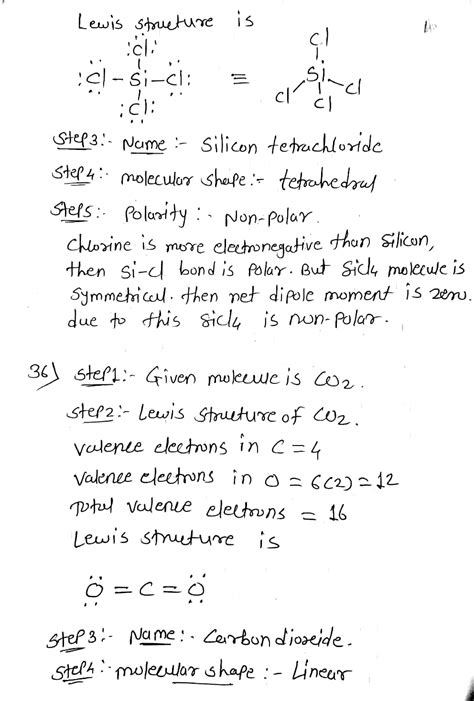 Lewis structure is
:Cl:
:Cl – Si – Cl: ≡
:Cl:
Cl
Si
Cl Cl Cl
Step3:- Name :- Silicon tetrachloride
Step4:- molecular shape:- tetrahedral
Step5:- Polarity :- Non-Polar.
Chlorine is more electronegative than Silicon,
then Si-Cl bond is Polar. But SiCl4 molecule is
Symmetrical. then net dipole moment is zero.
due to this SiCl4 is non-polar.
36) Step1:- Given molecule is CO2.
Step2:- Lewis Structure of CO2.
valence electrons in C = 4
valence electrons in O = 6(2) = 12
Total valence electrons = 16
Lewis structure is
O = C = O
Step3:- Name :- Carbon dioxide.
Step4:- molecular shape :- Linear